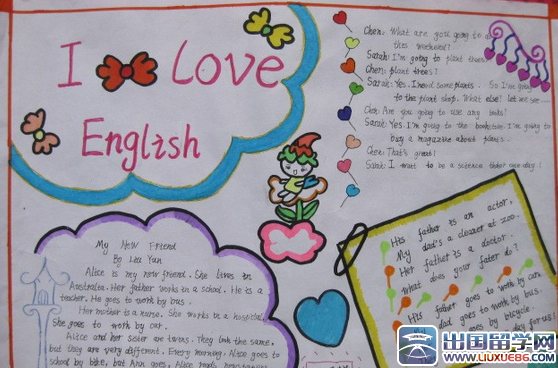 I Love
English
Chen: What are you going to do
this weekend?
Sarah: I'm going to plant trees.
Chen: plant trees?
Sarah: Yes. I need some plants. So I'm going
to the plant shop. What else? Let me see
Chen: Are you going to use any books?
Sarah: Yes. I'm going to the bookstore. I'm going to
buy a magazine about plants.
Chen: That's great!
Sarah: I want to be a science teacher one day!
My New Friend
By Liu Yun
Alice is my new friend. She lives in
Australia. Her father works in a school. He is a
teacher. He goes to work by bus.
Her mother is a nurse. She works in a hospital.
She goes to work by car.
Alice and her sister are twins. They look the same,
but they are very different. Every morning, Alice goes to
school by bike, but Ann goes
His father is an actor,
My dad's a cleaner at zoo.
Her father is a doctor.
What does your father do?
His father goes to work by car
dad goes to work by bus.
goes by bicycle.
day for us!
出国留学网
www.liuxue86.com